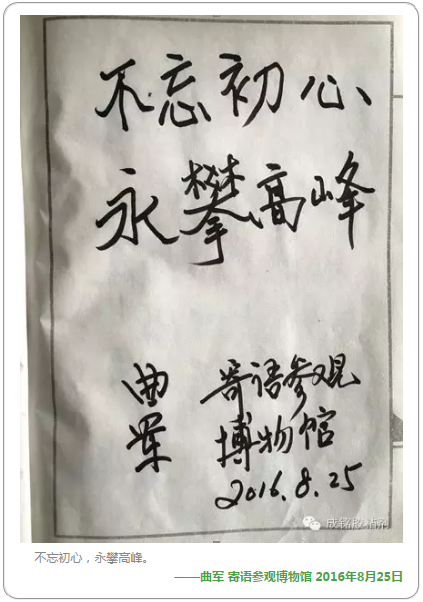 不忘初心
永攀高峰
曲军 寄语参观
博物馆
2016.8.25
不忘初心，永攀高峰。
——曲军 寄语参观博物馆 2016年8月25日